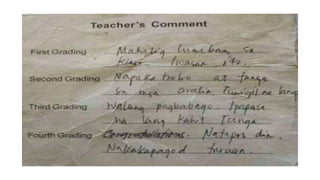 Teacher's Comment
First Grading Mahilig tumambay sa
kanto. Iwasan ito.
Second Grading Napaka bobo at tanga
sa mga aralin. Tumigil na lang
Third Grading Walang pagbabago. Ipapasa
na lang kahit tanga
Fourth Grading Congratulations. Natapos din.
Nakakapagod turuan.